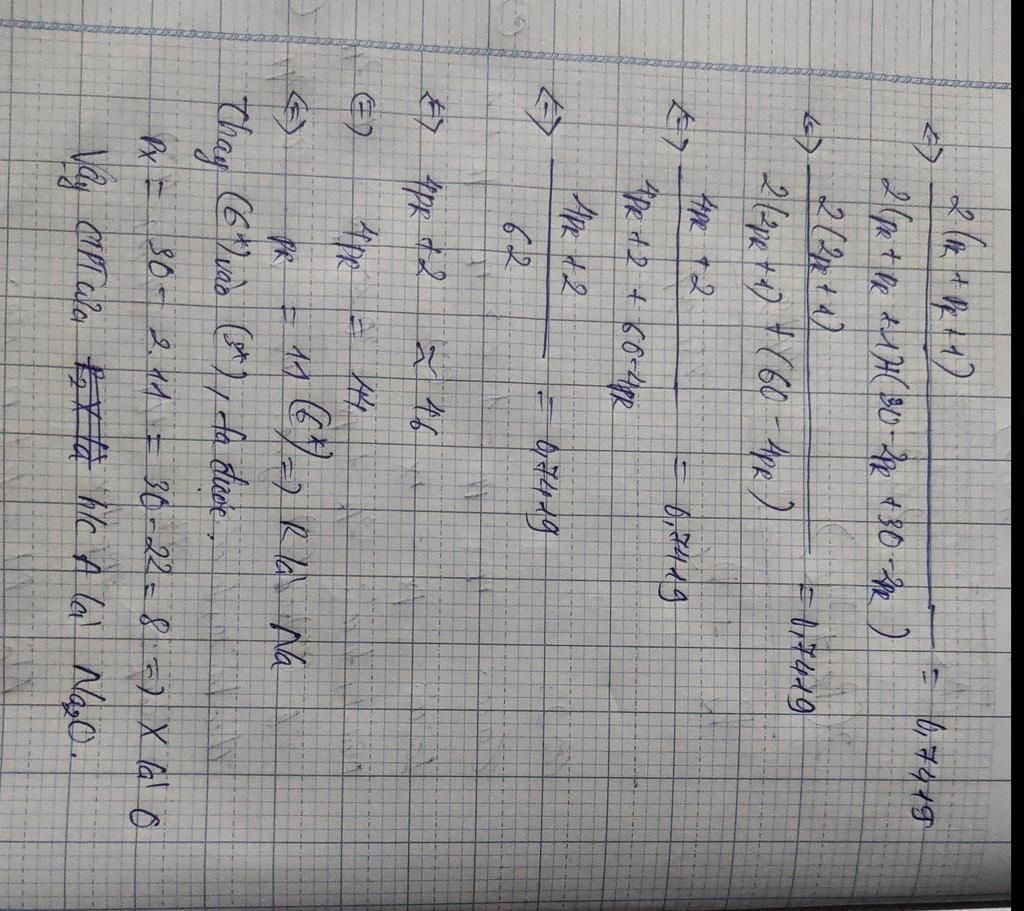 <=> 2(pR + pR + 1) / 2(pR + pR + 1) + (30 - 2pR + 30 - 2pR) = 0,7419
<=> 2(2pR + 1) / 2(2pR + 1) + (60 - 4pR) = 0,7419
<=> 4pR + 2 / 4pR + 2 + 60 - 4pR = 0,7419
<=> 4pR + 2 / 62 = 0,7419
<=> 4pR + 2 ≈ 46
<=> 4pR = 44
<=> pR = 11 (6*) => R là Na
Thay (6*) vào (3*), ta được:
pX = 30 - 2.11 = 30 - 22 = 8 => X là O
Vậy CTPT của h/c A là Na₂O.